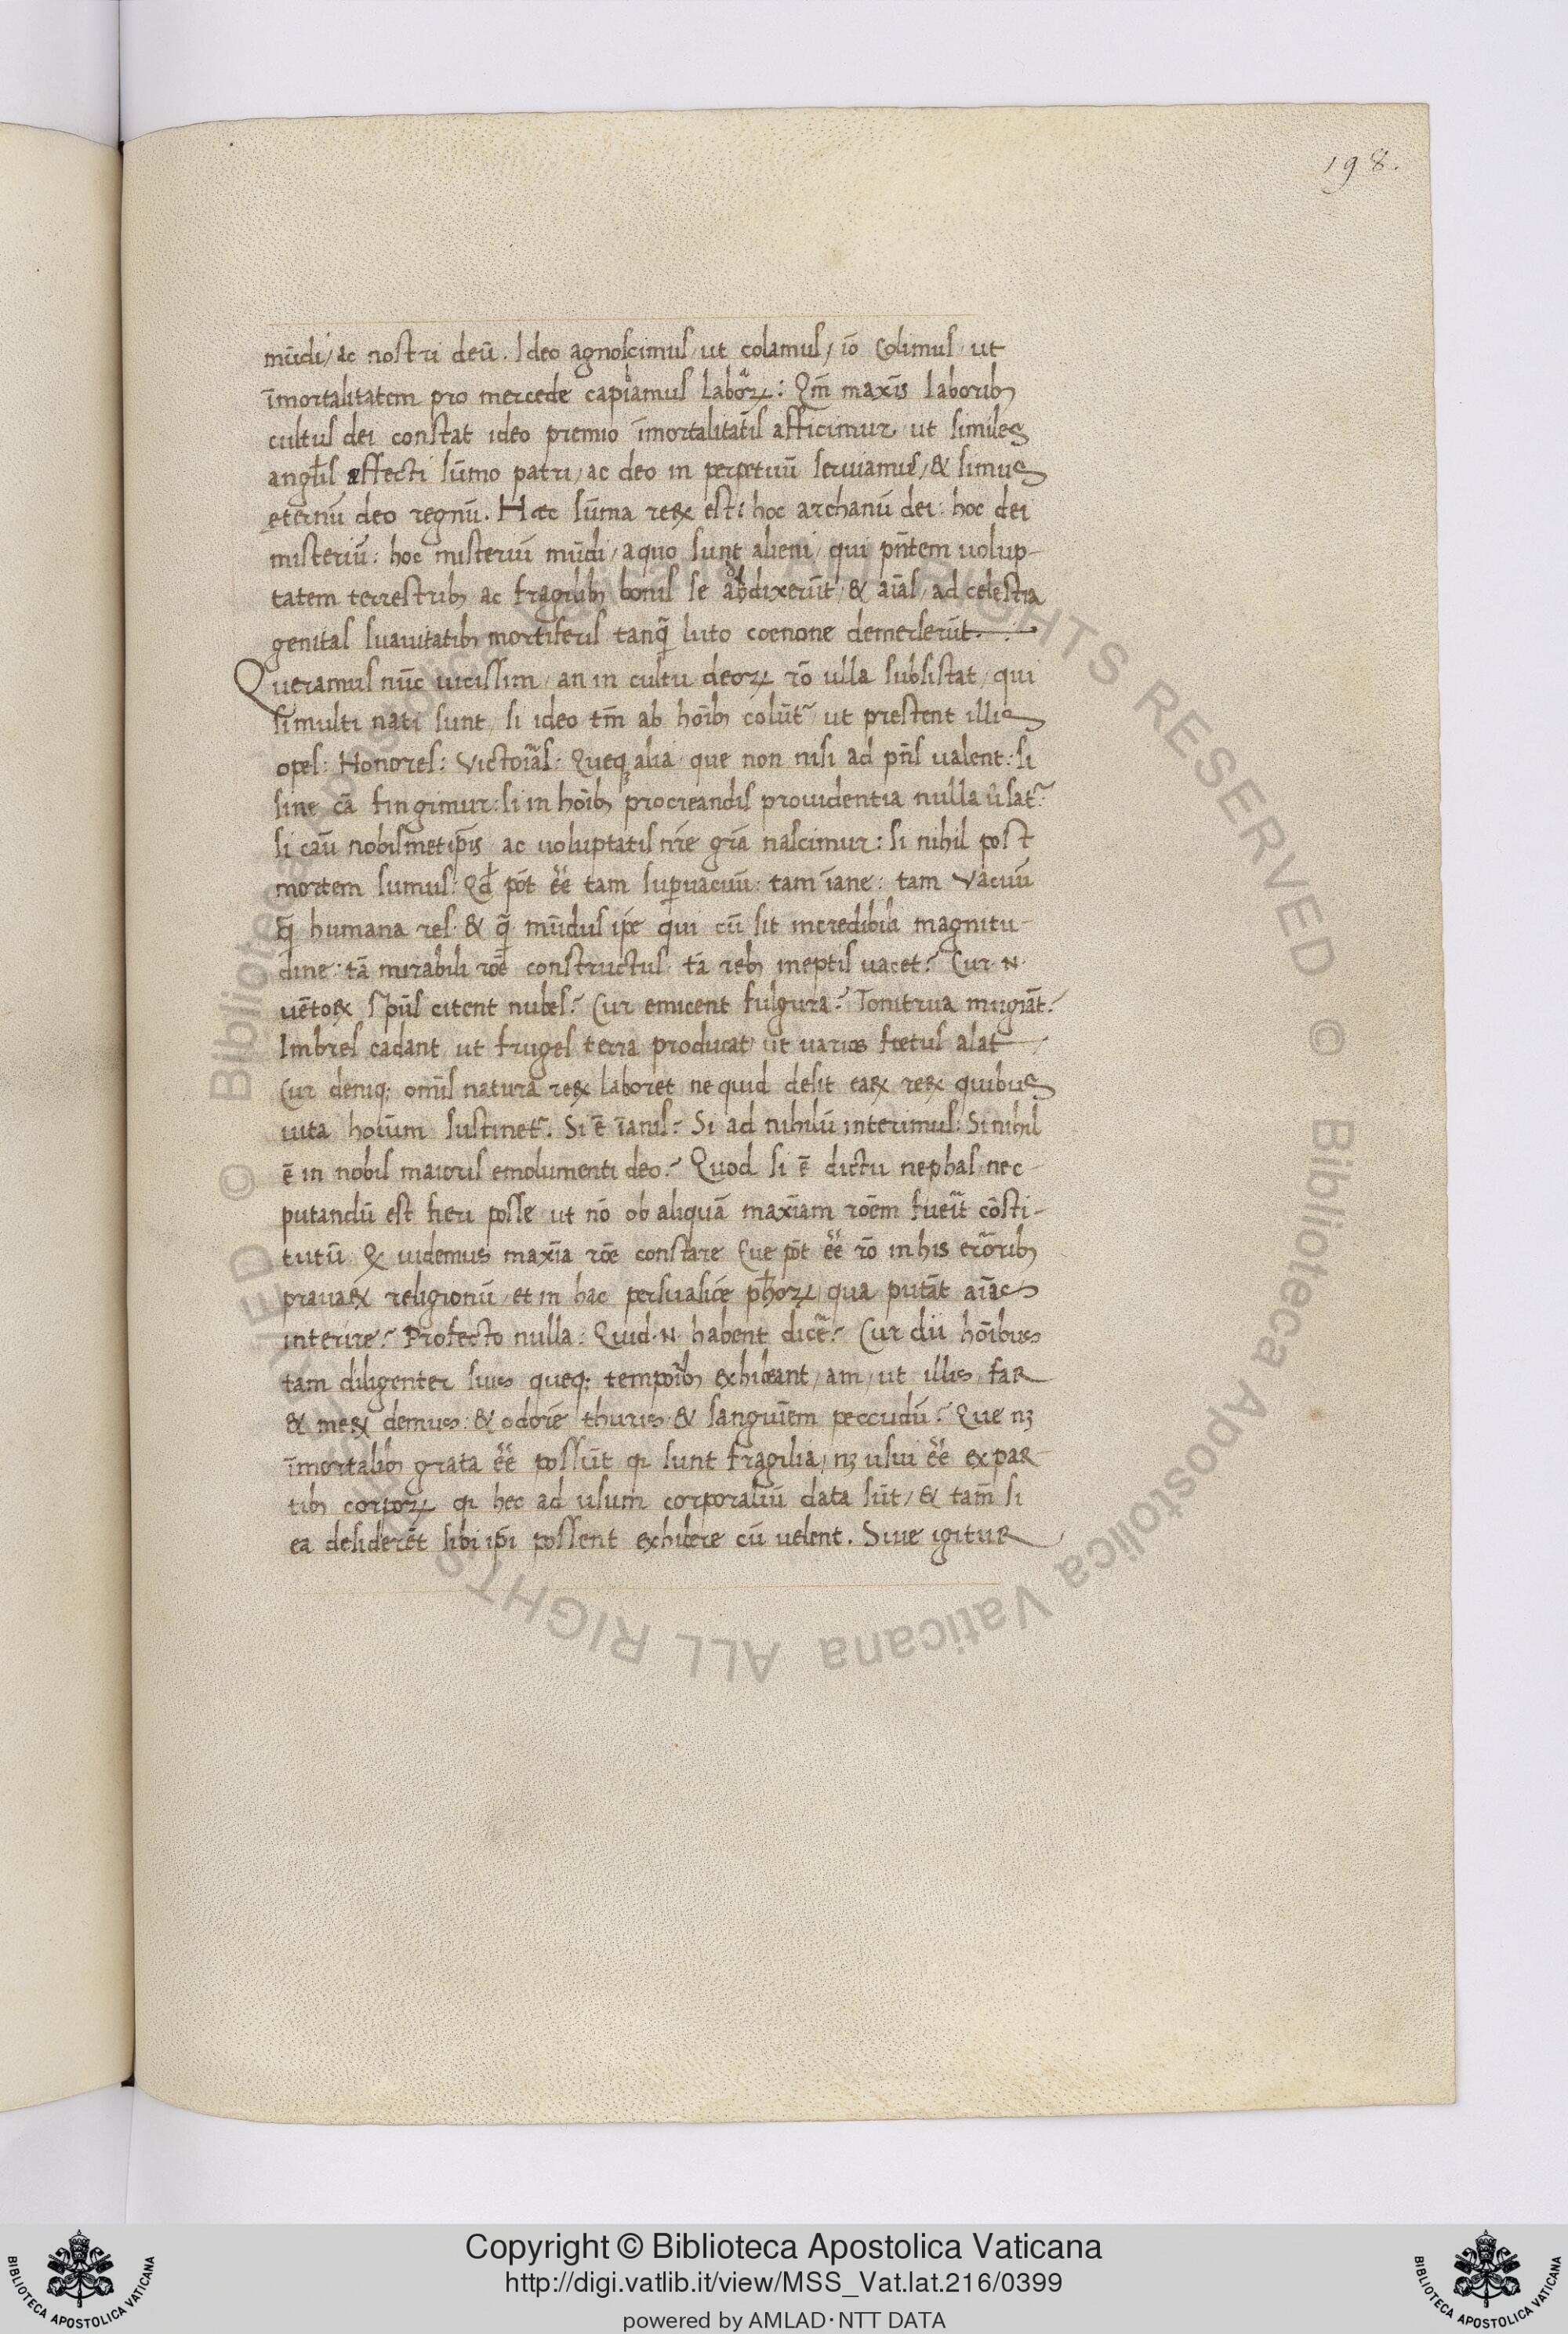 198.
mūdi / ac nostri deū. Ideo agnoscimus / ut colamus / iō Colimus / ut
īmortalitatem pro mercede capiamus laboꝝ: Qm̄ maxīs laboribꝫ
cultus dei constat ideo premio īmortalitatīs afficimur / ut similes
angl̄is effecti sūmo patri / ac deo in perpetuū seruiamus / & simus
eternū deo regnū. Haec sūma reꝝ est: hoc archanū dei: hoc dei
misteriū: hoc misteriū mūdi / a quo sunt alieni / qui pn̄tem uolup-
tatem terrestribꝫ ac fragilibꝫ bonis se addixerūt / & aīas / ad celestia
genitas suauitatibꝫ mortiferis tanq̄ luto coenone demerserūt.
Queramus nūc uicissim / an in cultu deoꝝ rō ulla subsistat / qui
si multi nati sunt / si ideo tm̄ ab hoībꝫ colūt᷑ ut prestent illis
opes: Honores: Victorias: Queqꝫ alia / que non nisi ad pn̄s ualent: si
sine cā fingimur: si in hoībꝫ procreandis prouidentia nulla ūsat᷑
si caū nobismetip̄is ac uoluptatis nr̄e grā nascimur: si nihil post
mortem sumus: Qd̄ pōt ēē tam superuacuū: tam īane: tam Vacuū
q̄ humana res & q̄ mūdus ip̄e qui cū sit incredibili magnitu-
dine: tā mirabili rōē constructus tā rebꝫ ineptis uacet? Cur .N.
uētoꝝ sp̄us citent nubes? Cur emicent fulgura? Tonitrua mugiāt?
Imbres cadant ut fruges terra producat / ut uarios foetus alat
Cur deniqꝫ omīs natura reꝝ laboret ne quid desit eaꝝ reꝝ quibus
uita hoīum sustinet᷑. Si ē īanis? Si ad nihilū interimus: Si nihil
ē in nobis maioris emolumenti deo? Quod si ē dictu nephas / nec
putandū est fieri posse ut nō ob aliquā maxīam rōem fuerit cōsti-
tutū / & uidemus maxīa rōe constare Eue pōt ēē rō in his erroribꝫ
prauaꝝ religionū / et in hac persuasiōe ph̄oꝝ / qua putāt aīas
interire? Profecto nulla: Quid .N. habent dicē? Cur dii hoībus
tam diligenter suis queqꝫ temporibꝫ exhibeant / am / ut illis far
& meꝝ demus: & odorē thuris & sanguīem peccudū? Que nꝫ
īmortalibꝫ grata ēē possūt qꝛ sunt fragilia / nꝫ usui ēē expar-
tibꝫ corpoꝝ qꝛ hec ad usum corporaliū data sūt / & tam̄ si
ea desiderēt sibi ip̄i possent exhibere cū uelent. Siue igitur
Copyright © Biblioteca Apostolica Vaticana
http://digi.vatlib.it/view/MSS_Vat.lat.216/0399
powered by AMLAD·NTT DATA
BIBLIOTECA APOSTOLICA VATICANA
BIBLIOTECA APOSTOLICA VATICANA